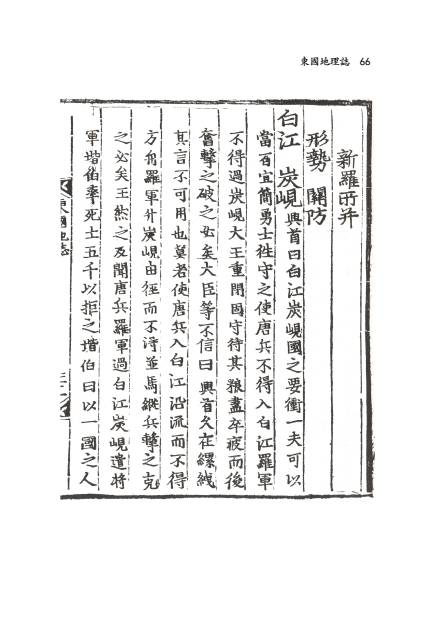 東國地理誌 66
新羅所并
形勢 關防
白江 炭峴興首曰白江炭峴國之要衝一夫可以
當百宜簡勇士徃守之使唐兵不得入白江羅軍
不得過炭峴大王重閉固守待其粮盡卒疲而後
奮擊之破之必矣大臣等不信曰興首久在縲絏
其言不可用也莫若使唐兵入白江沿流而不得
方舟羅軍升炭峴由徑而不得並馬縱兵擊之克
之必矣王然之及聞唐兵羅軍過白江炭峴遣將
軍堦伯率死士五千以拒之堦伯曰以一國之人